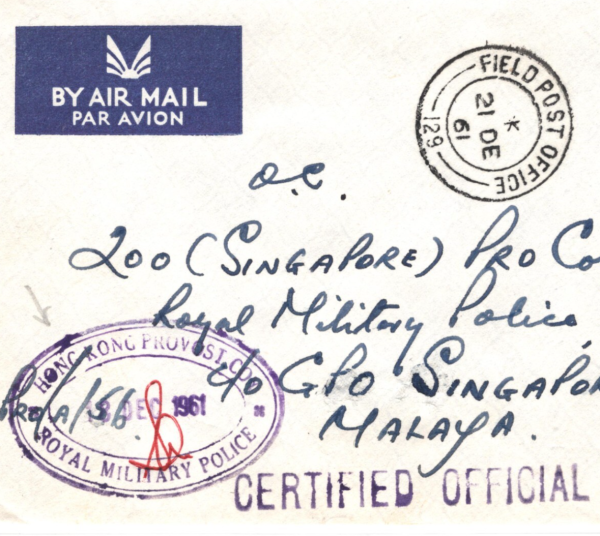 BY AIR MAIL
PAR AVION
FIELD POST OFFICE
129
*
21 DE
61
O.C.
200 (SINGAPORE) PRO Co
Royal Military Police,
c/o GPO SINGAPOR
MALAYA.
HONG KONG PROVOST
DEC 1961
ROYAL MILITARY POLICE
CERTIFIED OFFICIAL